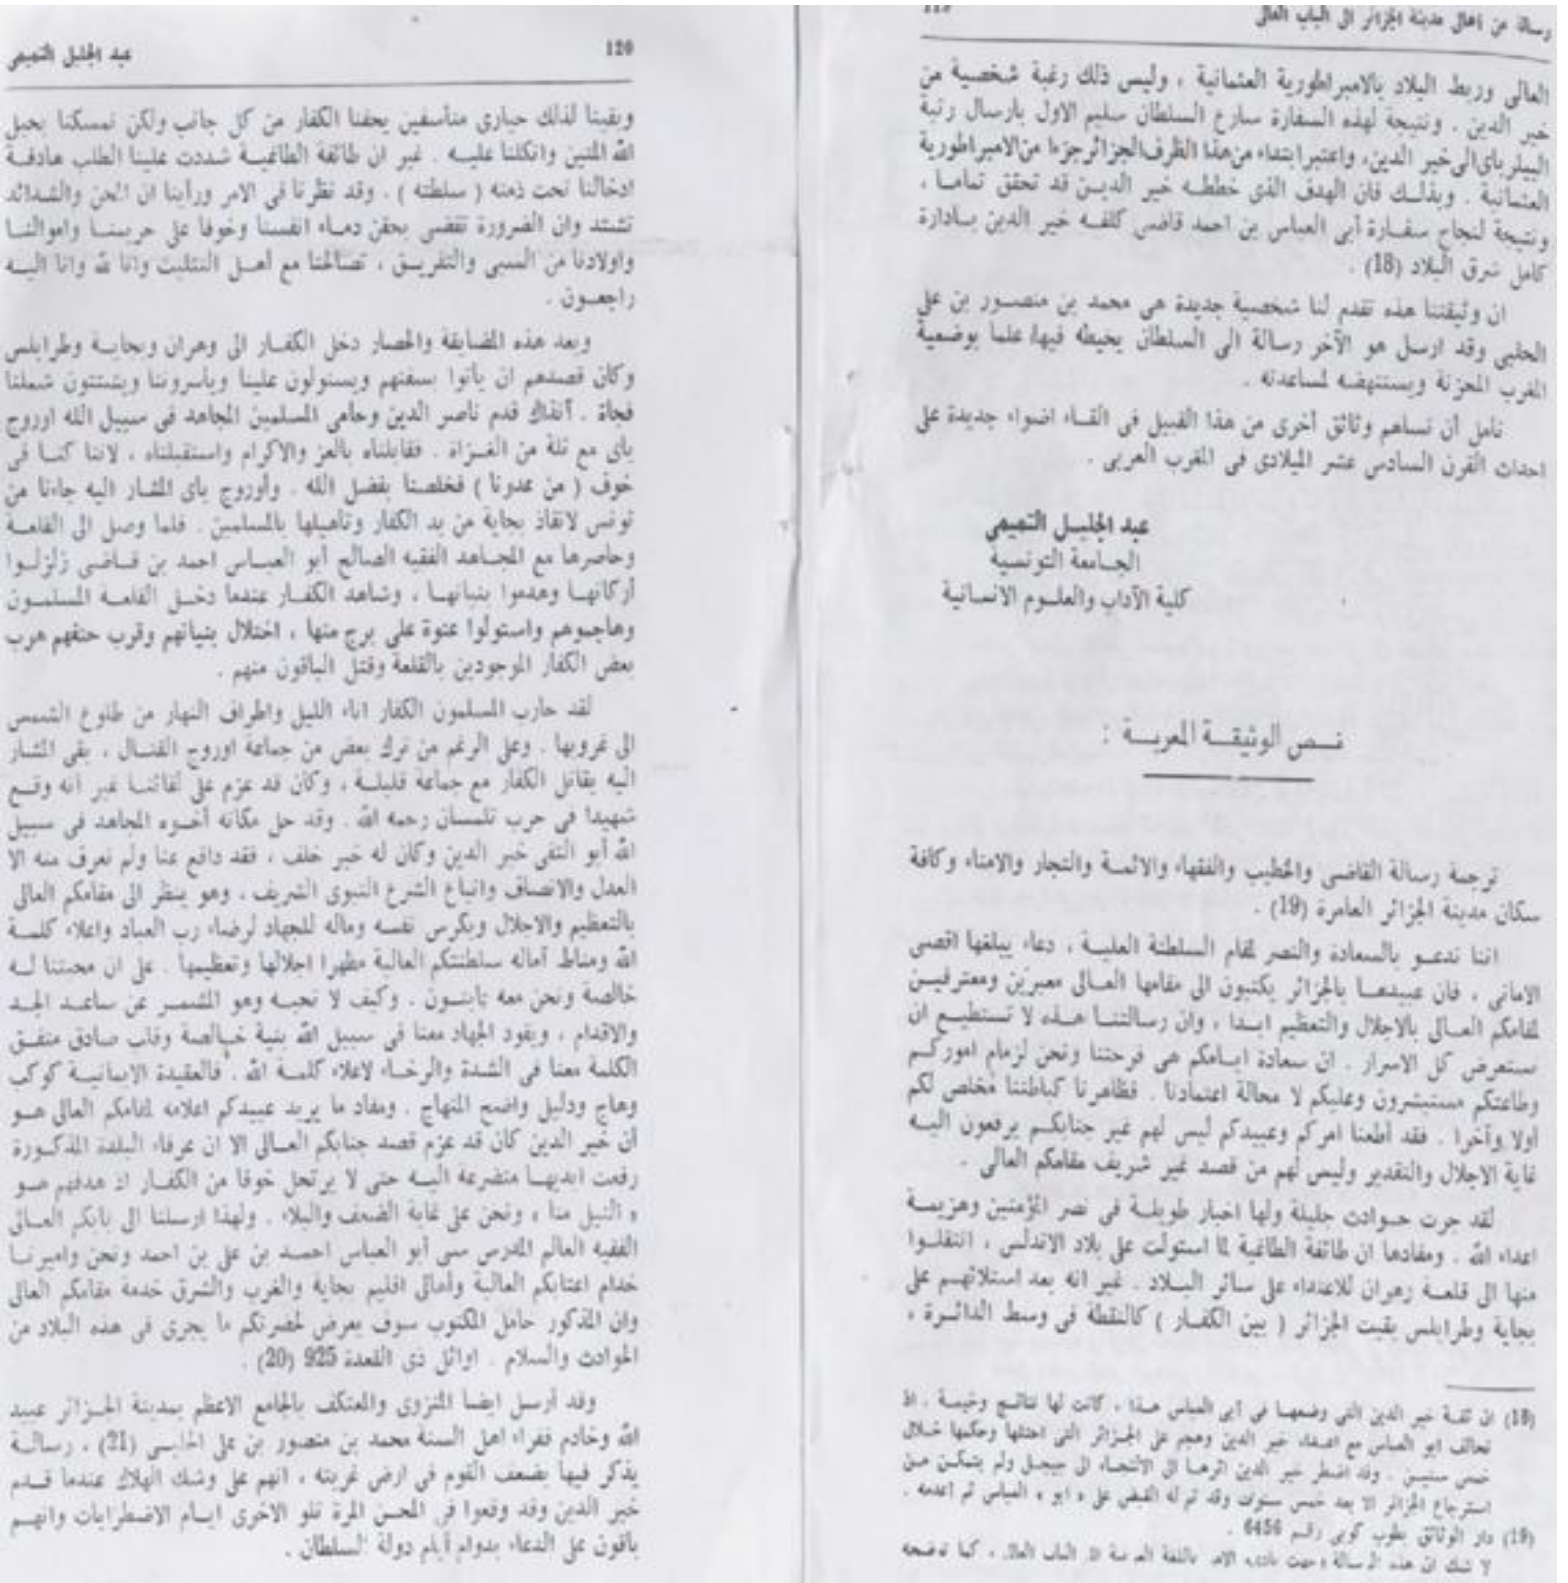 رسالة من أهالي مدينة الجزائر الى الباب العالي
119
العالى وربط البلاد بالامبراطورية العثمانية ، وليس ذلك رغبة شخصية من
خير الدين . ونتيجة لهذه السفارة سارع السلطان سليم الاول بارسال رتبة
البيلرباى الى خير الدين، واعتبر ابتداء من هذا الظرف الجزائر جزءا من الامبراطورية
العثمانية . وبذلك فان الهدف الذى خططه خير الدين قد تحقق تماما ،
ونتيجة لنجاح سفارة أبى العباس بن احمد قاضى كلفه خير الدين بادارة
كامل شرق البلاد (18) .
ان وثيقتنا هذه تقدم لنا شخصية جديدة هى محمد بن منصور بن على
الحلبى وقد ارسل هو الآخر رسالة الى السلطان يحيطه فيها علما بوضعية
المغرب المحزنة ويستنهضه لمساعدته .
نامل أن تساهم وثائق أخرى من هذا القبيل فى القاء اضواء جديدة على
احداث القرن السادس عشر الميلادى فى المغرب العربى .
عبد الجليل التميمى
الجامعة التونسية
كلية الآداب والعلوم الانسانية
نص الوثيقة المعربة :
ترجمة رسالة القاضى والخطيب والفقهاء والائمة والتجار والامناء وكافة
سكان مدينة الجزائر العامرة (19) .
اننا ندعو بالسعادة والنصر لمقام السلطنة العلية ، دعاء يبلغها اقصى
الامانى ، فان عبيدها بالجزائر يكتبون الى مقامها العالى معبرين ومعترفين
لمقامكم العالى بالاجلال والتعظيم ابدا ، وان رسالتنا هذه لا تستطيع ان
تستعرض كل الاسرار . ان سعادة ايامكم هى فرحتنا ونحن لزمام اموركم
وطاعتكم مستبشرون وعليكم لا محالة اعتمادنا . فظاهرنا كباطننا مخلص لكم
أولا وآخرا . فقد أطعنا امركم وعبيدكم ليس لهم غير جنابكم يرفعون اليه
غاية الاجلال والتقدير وليس لهم من قصد غير شريف مقامكم العالى .
لقد جرت حوادث جليلة ولها اخبار طويلة فى نصر المؤمنين وهزيمة
اعداء الله . ومفادها ان طائفة الطاغية لما استولت على بلاد الاندلس ، انتقلوا
منها الى قلعة وهران للاعتداء على سائر البلاد . غير انه بعد استلائهم على
بجاية وطرابلس بقيت الجزائر ( بين الكفار ) كالنقطة فى وسط الدائرة ،
(18) ان ثقة خير الدين التى وضعها فى أبى العباس هذا ، كانت لها نتائج وخيمة . اذ
تحالف ابو العباس مع اعداء خير الدين وهجم على الجزائر التى احتلها وحكمها خلال
خمس سنين . وقد اضطر خير الدين اثرها الى الالتجاء الى جيجل ولم يتمكن من
استرجاع الجزائر الا بعد خمس سنوات وقد تم له القبض على « ابو » العباس ثم أعدمه .
(19) دار الوثائق بطوب كوبى رقم 6456 .
لا شك ان هذه الرسالة وجهت بادىء الامر باللغة العربية الى الباب العالى ، كما توضحه
120
عبد الجليل التميمى
وبقينا لذلك حيارى متأسفين يحفنا الكفار من كل جانب ولكن تمسكنا بحبل
الله المتين واتكلنا عليه . غير ان طائفة الطاغية شددت علينا الطلب هادفة
ادخالنا تحت ذمته ( سلطته ) . وقد نظرنا فى الامر ورأينا ان المحن والشدائد
تشتد وان الضرورة تقضى بحقن دماء انفسنا وخوفا على حريمنا واموالنا
واولادنا من السبى والتفريق ، تصالحنا مع أهل التثليث وانا لله وانا اليه
راجعون .
وبعد هذه المضايقة والحصار دخل الكفار الى وهران وبجاية وطرابلس
وكان قصدهم ان يأتوا بسفنهم ويستولون علينا ويأسروننا ويشتتون شملنا
فجأة . آنذاك قدم ناصر الدين وحامى المسلمين المجاهد فى سبيل الله اوروج
باى مع ثلة من الغزاة . فقابلناه بالعز والاكرام واستقبلناه ، لاننا كنا فى
خوف ( من عدونا ) فخلصنا بفضل الله . وأوروج باى المشار اليه جاءنا من
تونس لانقاذ بجاية من يد الكفار وتأهيلها بالمسلمين . فلما وصل الى القلعة
وحاصرها مع المجاهد الفقيه الصالح أبو العباس احمد بن قاضى زلزلوا
أركانها وهدموا بنيانها ، وشاهد الكفار عندما دخل القلعة المسلمون
وهاجموهم واستولوا عنوة على برج منها ، اختلال بنيانهم وقرب حتفهم هرب
بعض الكفار الموجودين بالقلعة وقتل الباقون منهم .
لقد حارب المسلمون الكفار اناء الليل واطراف النهار من طلوع الشمس
الى غروبها . وعلى الرغم من ترك بعض من جماعة اوروج القتال ، بقى المشار
اليه يقاتل الكفار مع جماعة قليلة ، وكان قد عزم على لقائنا غير أنه وقع
شهيدا فى حرب تلمسان رحمه الله . وقد حل مكانه أخوه المجاهد فى سبيل
الله أبو التقى خير الدين وكان له خير خلف ، فقد دافع عنا ولم نعرف منه الا
العدل والانصاف واتباع الشرع النبوى الشريف ، وهو ينظر الى مقامكم العالى
بالتعظيم والاجلال ويكرس نفسه وماله للجهاد لرضاء رب العباد واعلاء كلمة
الله ومناط آماله سلطنتكم العالية مظهرا اجلالها وتعظيمها . على ان محبتنا له
خالصة ونحن معه ثابتون . وكيف لا نحبه وهو المشمر عن ساعد الجد
والاقدام ، ويقود الجهاد معنا فى سبيل الله بنية خالصة وقلب صادق متفق
الكلمة معنا فى الشدة والرخاء لاعلاء كلمة الله . فالعقيدة الايمانية كوكب
وهاج ودليل واضح المنهاج . ومفاد ما يريد عبيدكم اعلامه لمقامكم العالى هو
أن خير الدين كان قد عزم قصد جنابكم العالى الا ان عرفاء البلدة المذكورة
رفعت ايديها متضرعة اليه حتى لا يرتحل خوفا من الكفار اذ هدفهم هو
« النيل منا » ونحن على غاية الضعف والبلاء . ولهذا ارسلنا الى بابكم العالى
الفقيه العالم المدرس سى أبو العباس احمد بن على بن احمد ونحن واميرنا
خدام اعتابكم العالية وأهالى اقليم بجاية والغرب والشرق خدمة مقامكم العالى
وان المذكور حامل المكتوب سوف يعرض لحضرتكم ما يجرى فى هذه البلاد من
الحوادث والسلام . اوائل ذى القعدة 925 (20) .
وقد أرسل ايضا المنزوى والمعتكف بالجامع الاعظم بمدينة الجزائر عبيد
الله وخادم فقراء اهل السنة محمد بن منصور بن على الحلبى (21) ، رسالة
يذكر فيها بضعف القوم فى ارض غربته ، انهم على وشك الهلاك عندما قدم
خير الدين وقد وقعوا فى المحن المرة تلو الاخرى ايام الاضطرابات وانهم
باقون على الدعاء بدوام أيام دولة السلطان .